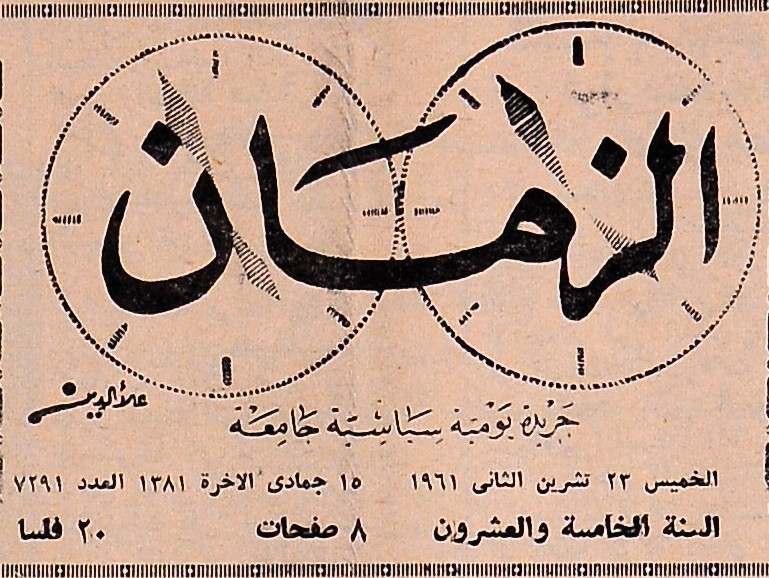 الزمان
علاء الدين
جريدة يومية سياسية جامعة
الخميس ٢٣ تشرين الثانى ١٩٦١ ١٥ جمادى الاخرة ١٣٨١ العدد ٧٢٩١
السنة الخامسة والعشرون ٨ صفحات ٢٠ فلسا